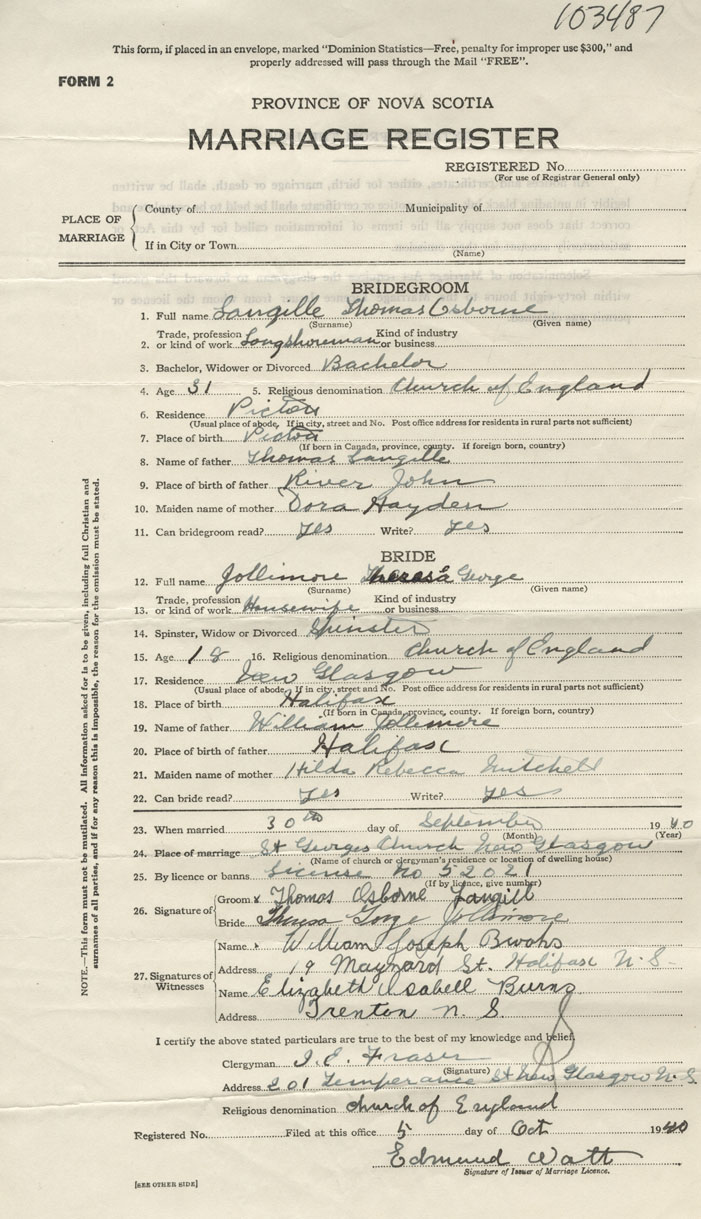 103487
This form, if placed in an envelope, marked "Dominion Statistics—Free, penalty for improper use $300," and
properly addressed will pass through the Mail "FREE".
FORM 2
PROVINCE OF NOVA SCOTIA
MARRIAGE REGISTER
REGISTERED No.
(For use of Registrar General only)
PLACE OF MARRIAGE
County of
Municipality of
If in City or Town
(Name)
BRIDEGROOM
1. Full name Langille Thomas Osborne
(Surname) (Given name)
Trade, profession Kind of industry
2. or kind of work Longshoreman or business
3. Bachelor, Widower or Divorced Bachelor
4. Age 31 5. Religious denomination Church of England
6. Residence Pictou
(Usual place of abode. If in city, street and No. Post office address for residents in rural parts not sufficient)
7. Place of birth Pictou
(If born in Canada, province, county. If foreign born, country)
8. Name of father Thomas Langille
9. Place of birth of father River John
10. Maiden name of mother Dora Hayden
11. Can bridegroom read? yes Write? yes
BRIDE
12. Full name Jollimore Theresa George
(Surname) (Given name)
Trade, profession Kind of industry
13. or kind of work Housewife or business
14. Spinster, Widow or Divorced Spinster
15. Age 18 16. Religious denomination Church of England
17. Residence New Glasgow
(Usual place of abode. If in city, street and No. Post office address for residents in rural parts not sufficient)
18. Place of birth Halifax
(If born in Canada, province, county. If foreign born, country)
19. Name of father William Jollimore
20. Place of birth of father Halifax
21. Maiden name of mother Hilda Rebecca Mitchell
22. Can bride read? yes Write? yes
23. When married 30th day of September 1940
(Month) (Year)
24. Place of marriage St Georges Church New Glasgow
(Name of church or clergyman's residence or location of dwelling house)
25. By licence or banns License No 52021
(If by licence, give number)
26. Signature of
Groom x Thomas Osborne Langill
Bride Theresa Gorge Jollimore
27. Signatures of Witnesses
Name William Joseph
Address 19 Maynard St. Halifax N.S.
Name Elizabeth Isabell Burns
Address Trenton N.S.
I certify the above stated particulars are true to the best of my knowledge and belief.
Clergyman J. E. Fraser
(Signature)
Address 201 Temperance St New Glasgow N.S
Religious denomination Church of England
Registered No. Filed at this office 5 day of Oct 1940
Edmund Watt
Signature of Issuer of Marriage Licence.
[SEE OTHER SIDE]
NOTE.—This form must not be mutilated. All information asked for is to be given, including full Christian and
surnames of all parties, and if for any reason this is impossible, the reason for the omission must be stated.